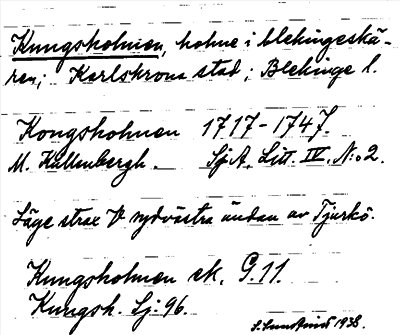 Kungsholmen, holme i blekingeskä-
ren; Karlskrona stad; Blekinge l.
Kongsholmen 1717-1747.
M. Kallenbergh. Sj.A. Litt. IV. N:o 2.
Läge strax V sydvästra ändan av Tjurkö.
Kungsholmen ek. G. 11.
Kungsh. Sj. 96.
1938.